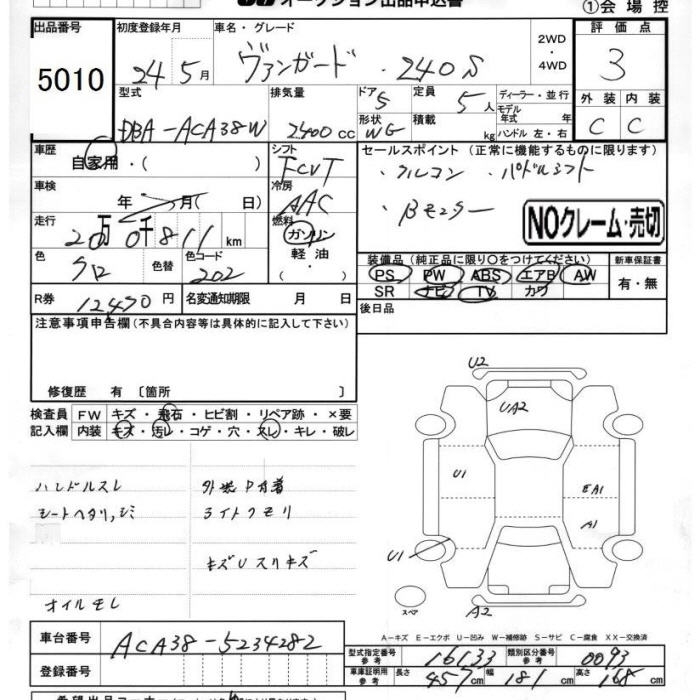 オークション出品申込書 ①会場控
出品番号 初度登録年月 車名・グレード 2WD 評価点
5010 24 5月 ヴァンガード ・240S ・4WD 3
型式 排気量 ドア 5 定員 5人 ディーラー・並行 外装 内装
DBA-ACA38W 2400cc 形状 WG 積載 kg モデル年式 年式 ハンドル 左・右 C C
車歴 自家用・( ) シフト FCVT セールスポイント(正常に機能するものに限ります)
車検 年 月( 日) 冷房 AAC ・クルコン ・パドルシフト
・Bモニター NOクレーム・売切
走行 20万0千811km 燃料 ガソリン
軽油・( )
色 クロ 色替 色コード 202
装備品(純正品に限り○をつけてください) 新車保証書
PS PW ABS エアB AW 有・無
SR ナビ TV カワ
R券 12470円 名変通知期限 月 日 後日品
注意事項申告欄(不具合内容等は具体的に記入して下さい)
修復歴 有〔箇所 〕
検査員 FW キズ・飛石・ヒビ割・リペア跡・×要
記入欄 内装 キズ・汚レ・コゲ・穴・スレ・キレ・破レ
ハンドルスレ 外装
シートヘタリ,シミ ライトクモリ
キズUスリキズ
オイルモレ
U2
UA2
U1 EA1
A1
U1
スペア A2
A-キズ E-エクボ U-凹み W-補修跡 S-サビ C-腐食 XX-交換済
車台番号 ACA38-5234282
登録番号
型式指定番号 参考 16133 類別区分番号 参考 0093
車庫証明用 参考 長さ 457cm 幅 181cm 高さ 168cm